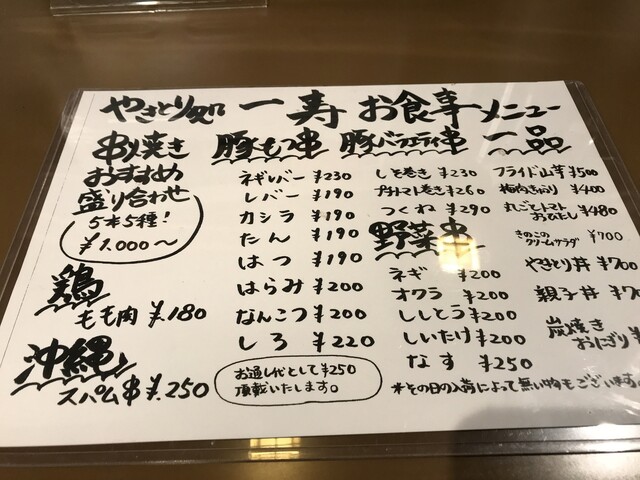 やきとり処 一寿 お食事メニュー
串焼き
おすすめ
盛り合わせ
5本5種!
¥1.000〜
鶏
もも肉 ¥.180
沖縄
スパム串 ¥.250
豚もつ串
ネギレバー ¥230
レバー ¥190
カシラ ¥190
たん ¥190
はつ ¥190
はらみ ¥200
なんこつ ¥200
しろ ¥220
お通し代として¥250
頂戴いたします。
豚バラエティ串
しそ巻き ¥230
プチトマト巻き ¥260
つくね ¥290
野菜串
ネギ ¥200
オクラ ¥200
ししとう ¥200
しいたけ ¥200
なす ¥250
一品
フライド山芋 ¥500
梅肉きゅうり ¥400
丸ごとトマト
おひたし ¥480
きのこの
クリームサラダ ¥700
やきとり丼 ¥700
親子丼 ¥70
炭焼き
おにぎり ¥
*その日の入荷によって無い物もございます